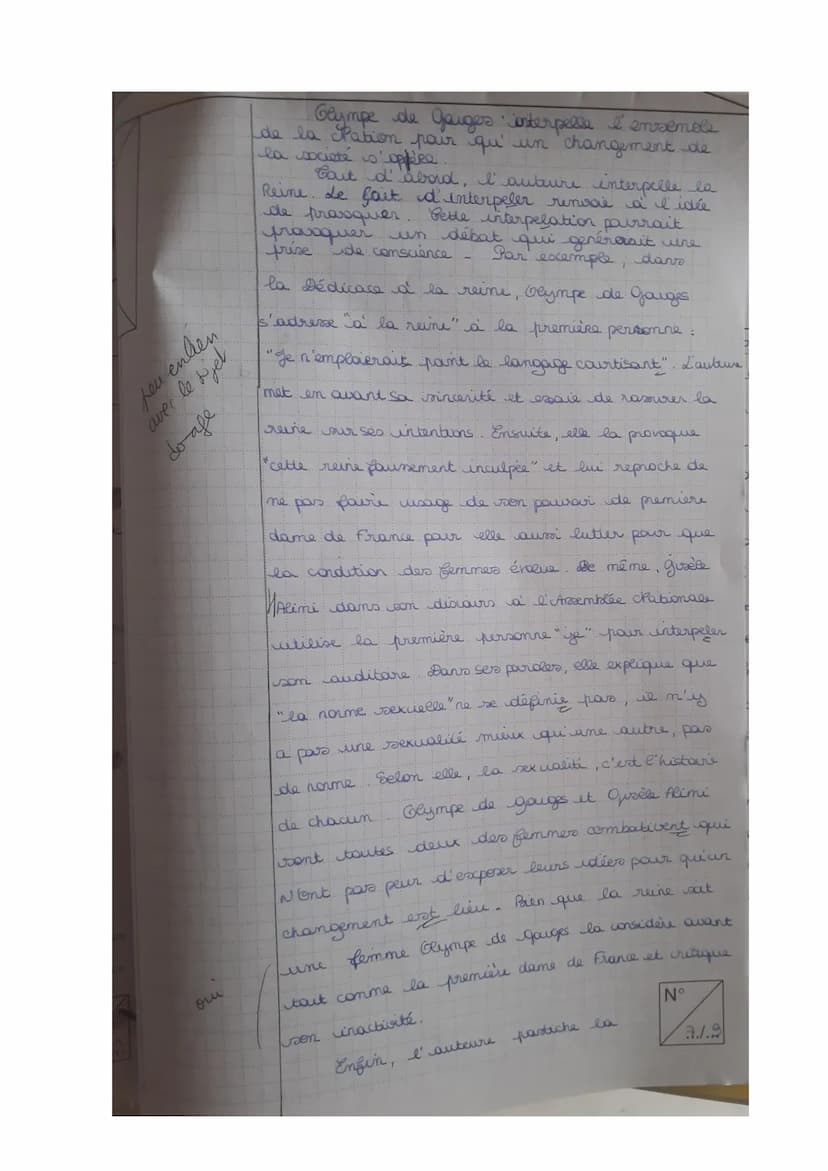 Olympe de Gouges interpelle l'ensemble
de la Nation pour qu'un changement de
la société s'opère.
Tout d'abord, l'auteure interpelle la
Reine. Le fait d'interpeler renvoie à l'idée
de provoquer. Cette interpelation pourrait
provoquer un débat qui générerait une
prise de conscience - Par exemple, dans
la Dédicace à la reine, Olympe de Gouges
s'adresse "à la reine" à la première personne :
"Je n'emploierait point le langage courtisant". L'auteure
met en avant sa sincérité et essaie de rassurer la
reine sur ses intentions. Ensuite, elle la provoque
"cette reine faussement inculpée" et lui reproche de
ne pas faire usage de son pouvoir de première
dame de France pour elle aussi lutter pour que
la condition des femmes évolue. De même, Gisèle
HAlimi dans son discours à l'Assemblée Nationale
utilise la première personne "je" pour interpeler
son auditoire. Dans ses paroles, elle explique que
"la norme sexuelle" ne se définie pas, il n'y
a pas une sexualité mieux qu'une autre, pas
de norme. Selon elle, la sexualité, c'est l'histoire
de chacun. Olympe de gouges et Gisèle Alimi
sont toutes deux des femmes combativent qui
N'ont pas peur d'exposer leurs idées pour qu'un
changement est lieu. Bien que la reine soit
une femme Olympe de gouges la considère avant
tout comme la première dame de France et critique
son inactivité.
Enfin, l'auteure pastiche la
peu en lien
avec le sujet
oui
N°
7/9